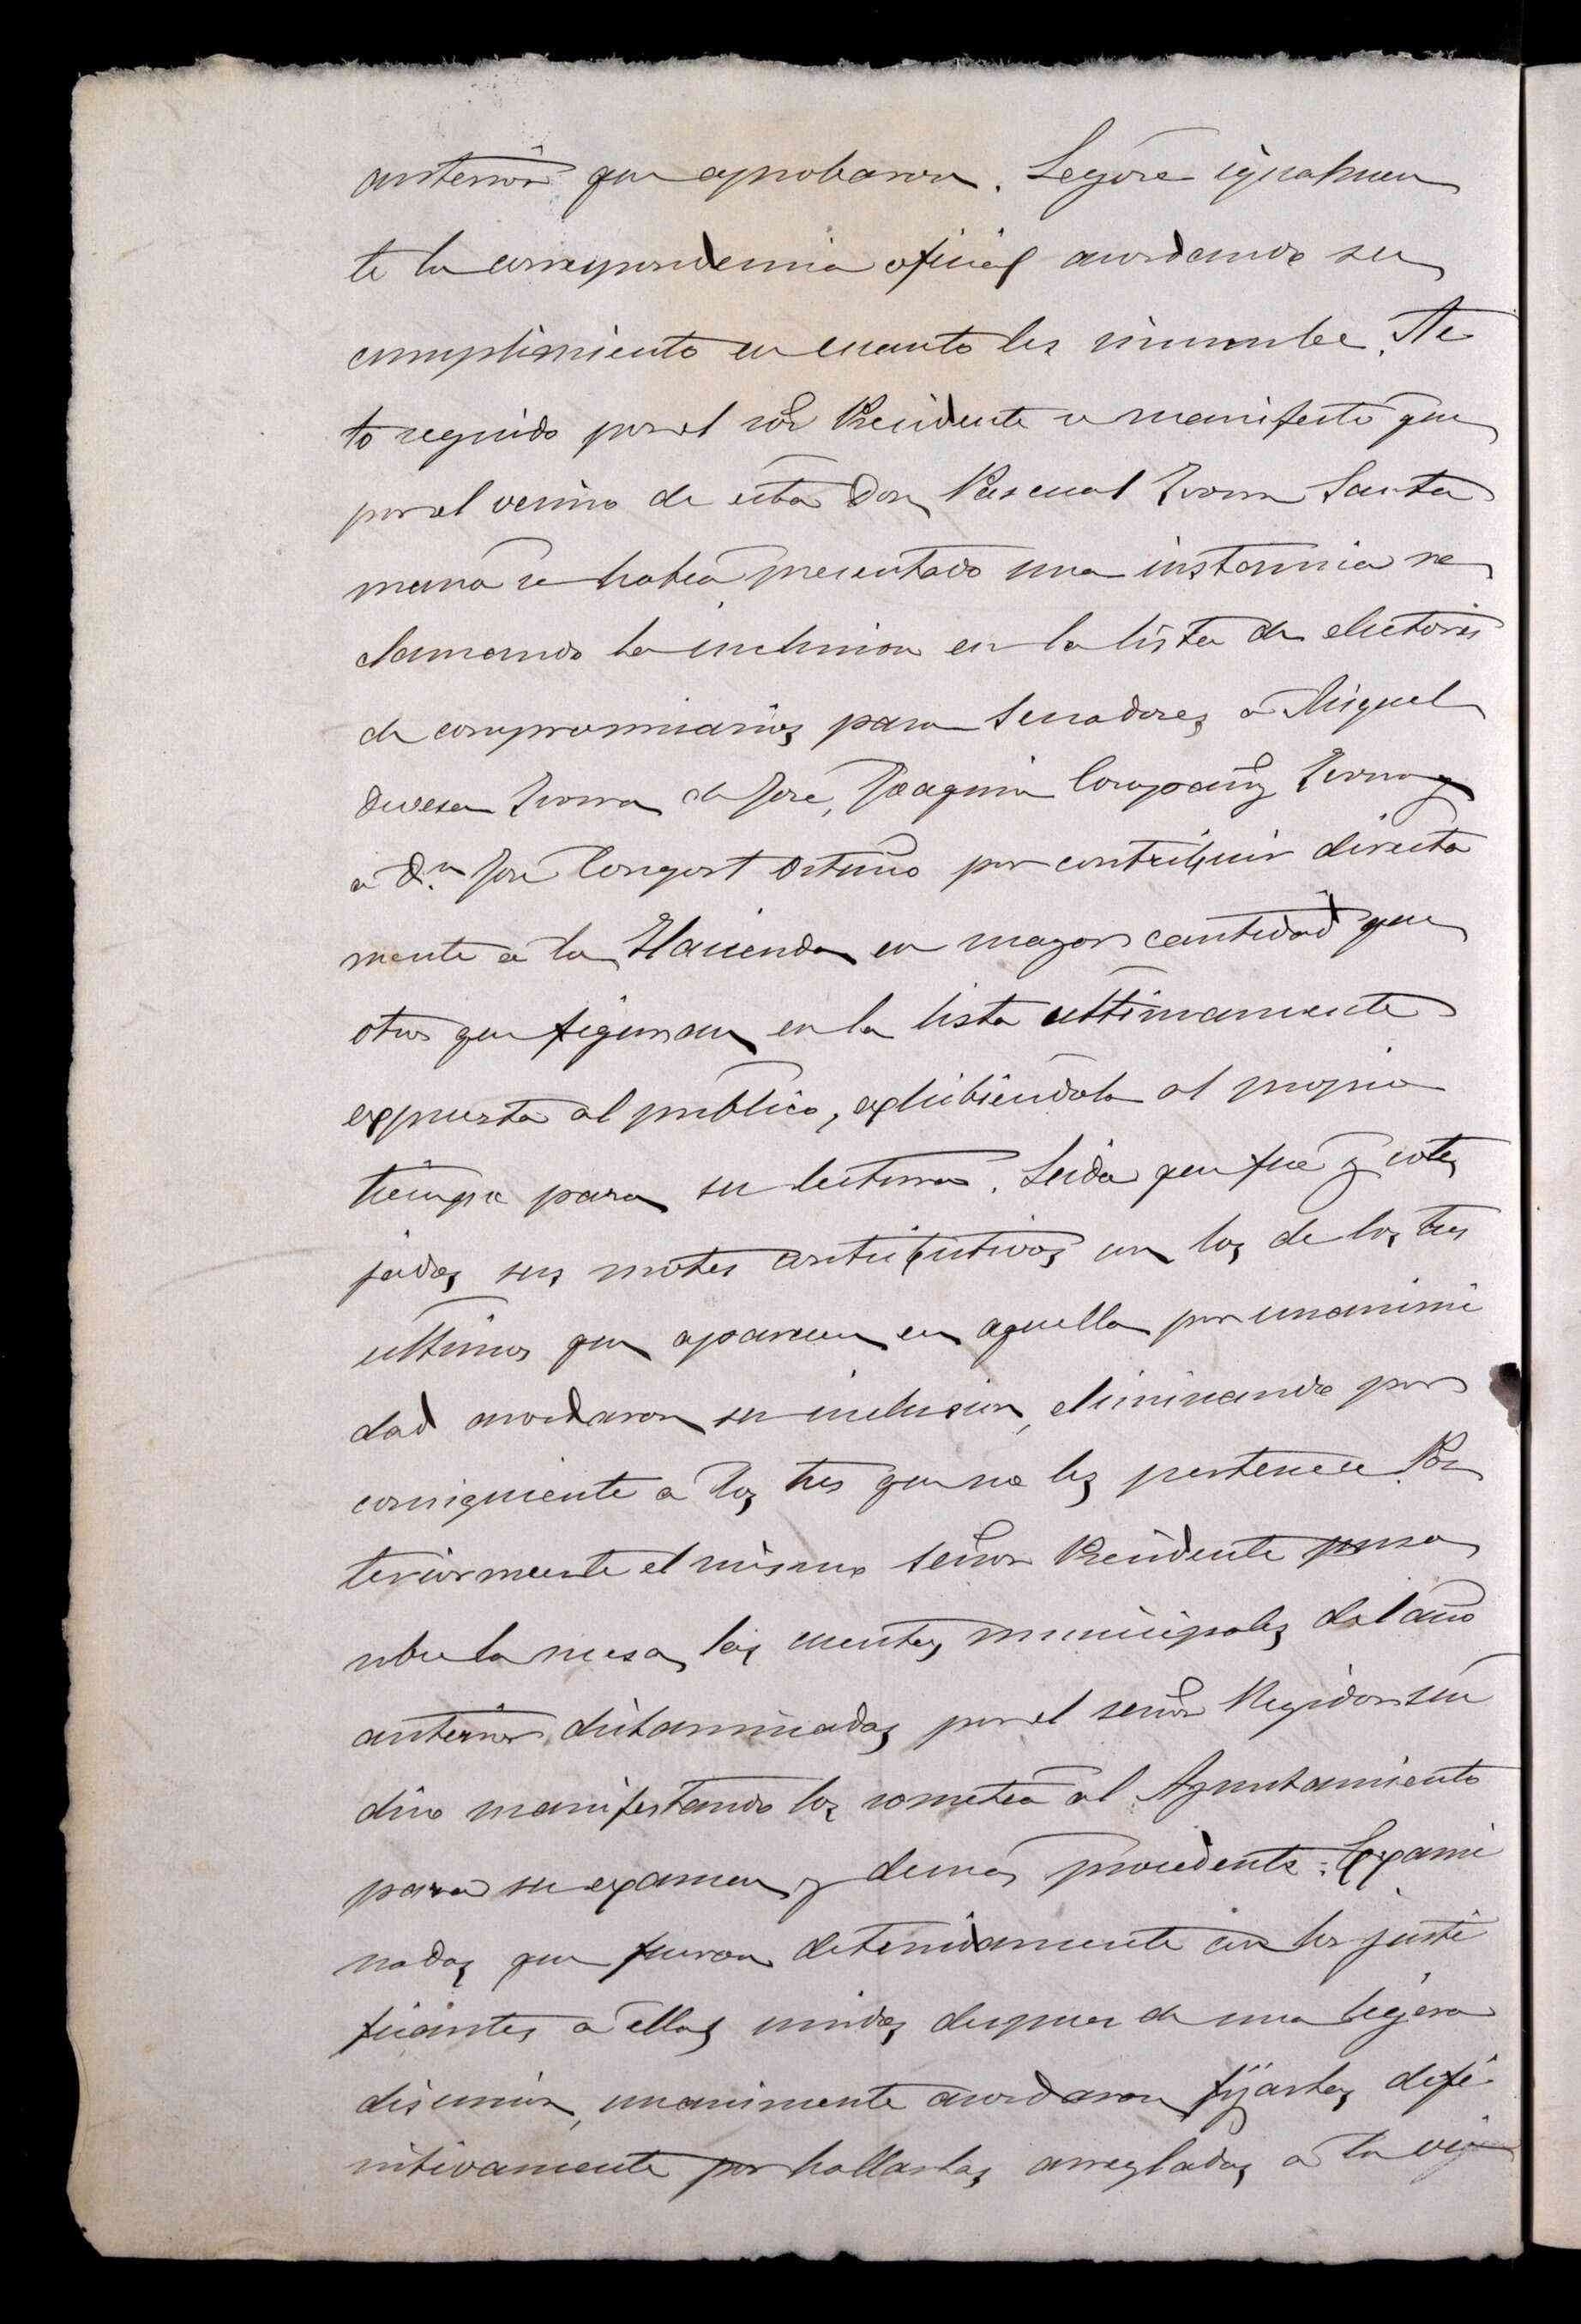 anterior que aprobaron. Leyose igualmen
te la correspondencia oficial acordando su
cumplimiento en cuanto les incumbe. Ac
to seguido por el sor Presidente se manifestó que
por el vecino de esta Don Pascual Ivorra Santa
maria se habia presentado una instancia re
clamando la inclusion en la lista de electores
de compromisarios para Senadores a Miguel
Devesa Ivorra de José, Joaquin Company Ivorra y
a Dn José Llongort Ortuño por contribuir directa
mente a la Hacienda en mayor cantidad que
otros que figuran en la lista ultimamente
expuesta al publico, exhibiendola al propio
tiempo para su lectura. Leida que fué y cote
jadas sus cuotas contributivas con las de los tres
ultimos que aparecen en aquella por unanimi
dad acordaron su inclusion, eliminando por
consiguiente a los tres que no les pertenece. Pos
teriormente el mismo señor Presidente puso
sobre la mesa las cuentas municipales del año
anterior dictaminadas por el señor Regidor sin
dico manifestando las sometia al Ayuntamiento
para su examen y demás procedente. Exami
nadas que fueron detenidamente con los justi
ficantes a ellas unidos despues de una ligera
discusion, unanimente acordaron fijarlas defi
nitivamente por hallarlas arregladas a la